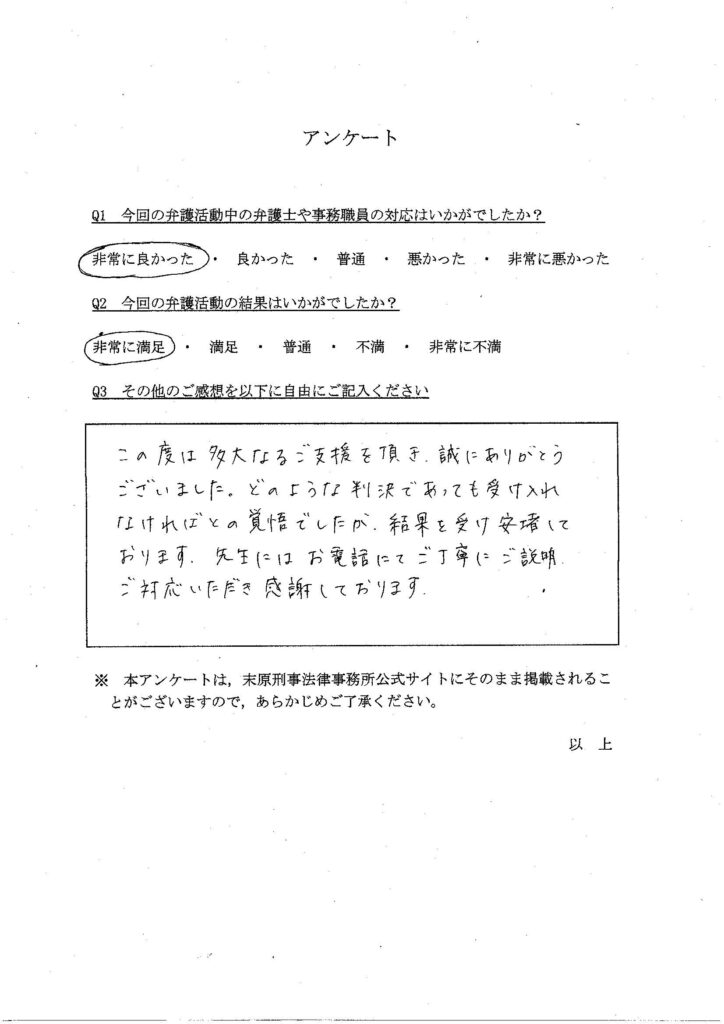 アンケート
Q1 今回の弁護活動中の弁護士や事務職員の対応はいかがでしたか？
非常に良かった ・ 良かった ・ 普通 ・ 悪かった ・ 非常に悪かった
Q2 今回の弁護活動の結果はいかがでしたか？
非常に満足 ・ 満足 ・ 普通 ・ 不満 ・ 非常に不満
Q3 その他のご感想を以下に自由にご記入ください
この度は多大なるご支援を頂き、誠にありがとう
ございました。どのような判決であっても受け入れ
なければとの覚悟でしたが、結果を受け安堵して
おります。先生にはお電話にてご丁寧にご説明、
ご対応いただき感謝しております。
※ 本アンケートは，末原刑事法律事務所公式サイトにそのまま掲載されるこ
とがございますので，あらかじめご了承ください。
以 上